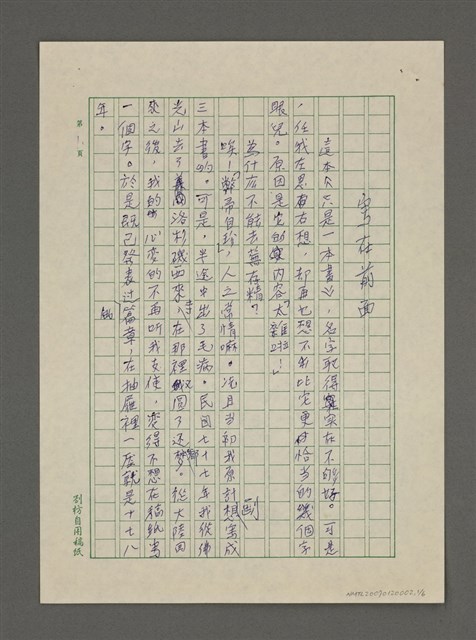 寫在前面
這本《只是一本書》，名字取得實在不夠好。可是
，任我左思右想，却再也想不到比它更恰當的幾個字
眼兒。原因是它的內容「太雜啦！」
為什麼不能去蕪存精？
唉！「敝帚自珍」，人之常情嘛。况且當初我原計劃想寫成
三本書的。可是，半途中出了毛病。民国七十七年我從佛
光山去了美國洛杉磯西來寺，在那裡又圓了还鄉夢。從大陸回
來之後，我的心变的不再听我支使，变得不想在稿紙上寫
一個字。於是既已發表过篇章，在抽屜裡一放就是十七八
年。
第1頁
劉枋自用稿紙
NMTL20090120002 1/6